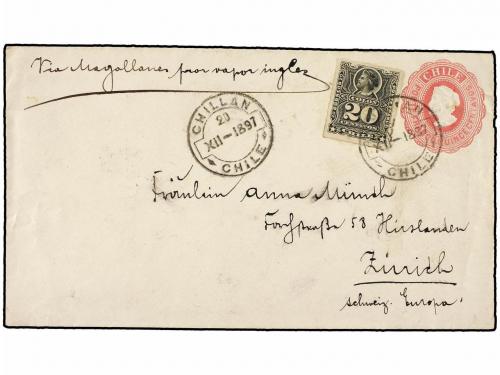 Via Magallanes por vapor ingles
CHILE
20
CENTAVOS
CHILLAN
20
XII-1897
CHILE
XII-1897
CHILE
Fräulein Anna Münch
Forchstraße 58 Hirslanden
Zürich
Schweiz. Europa.